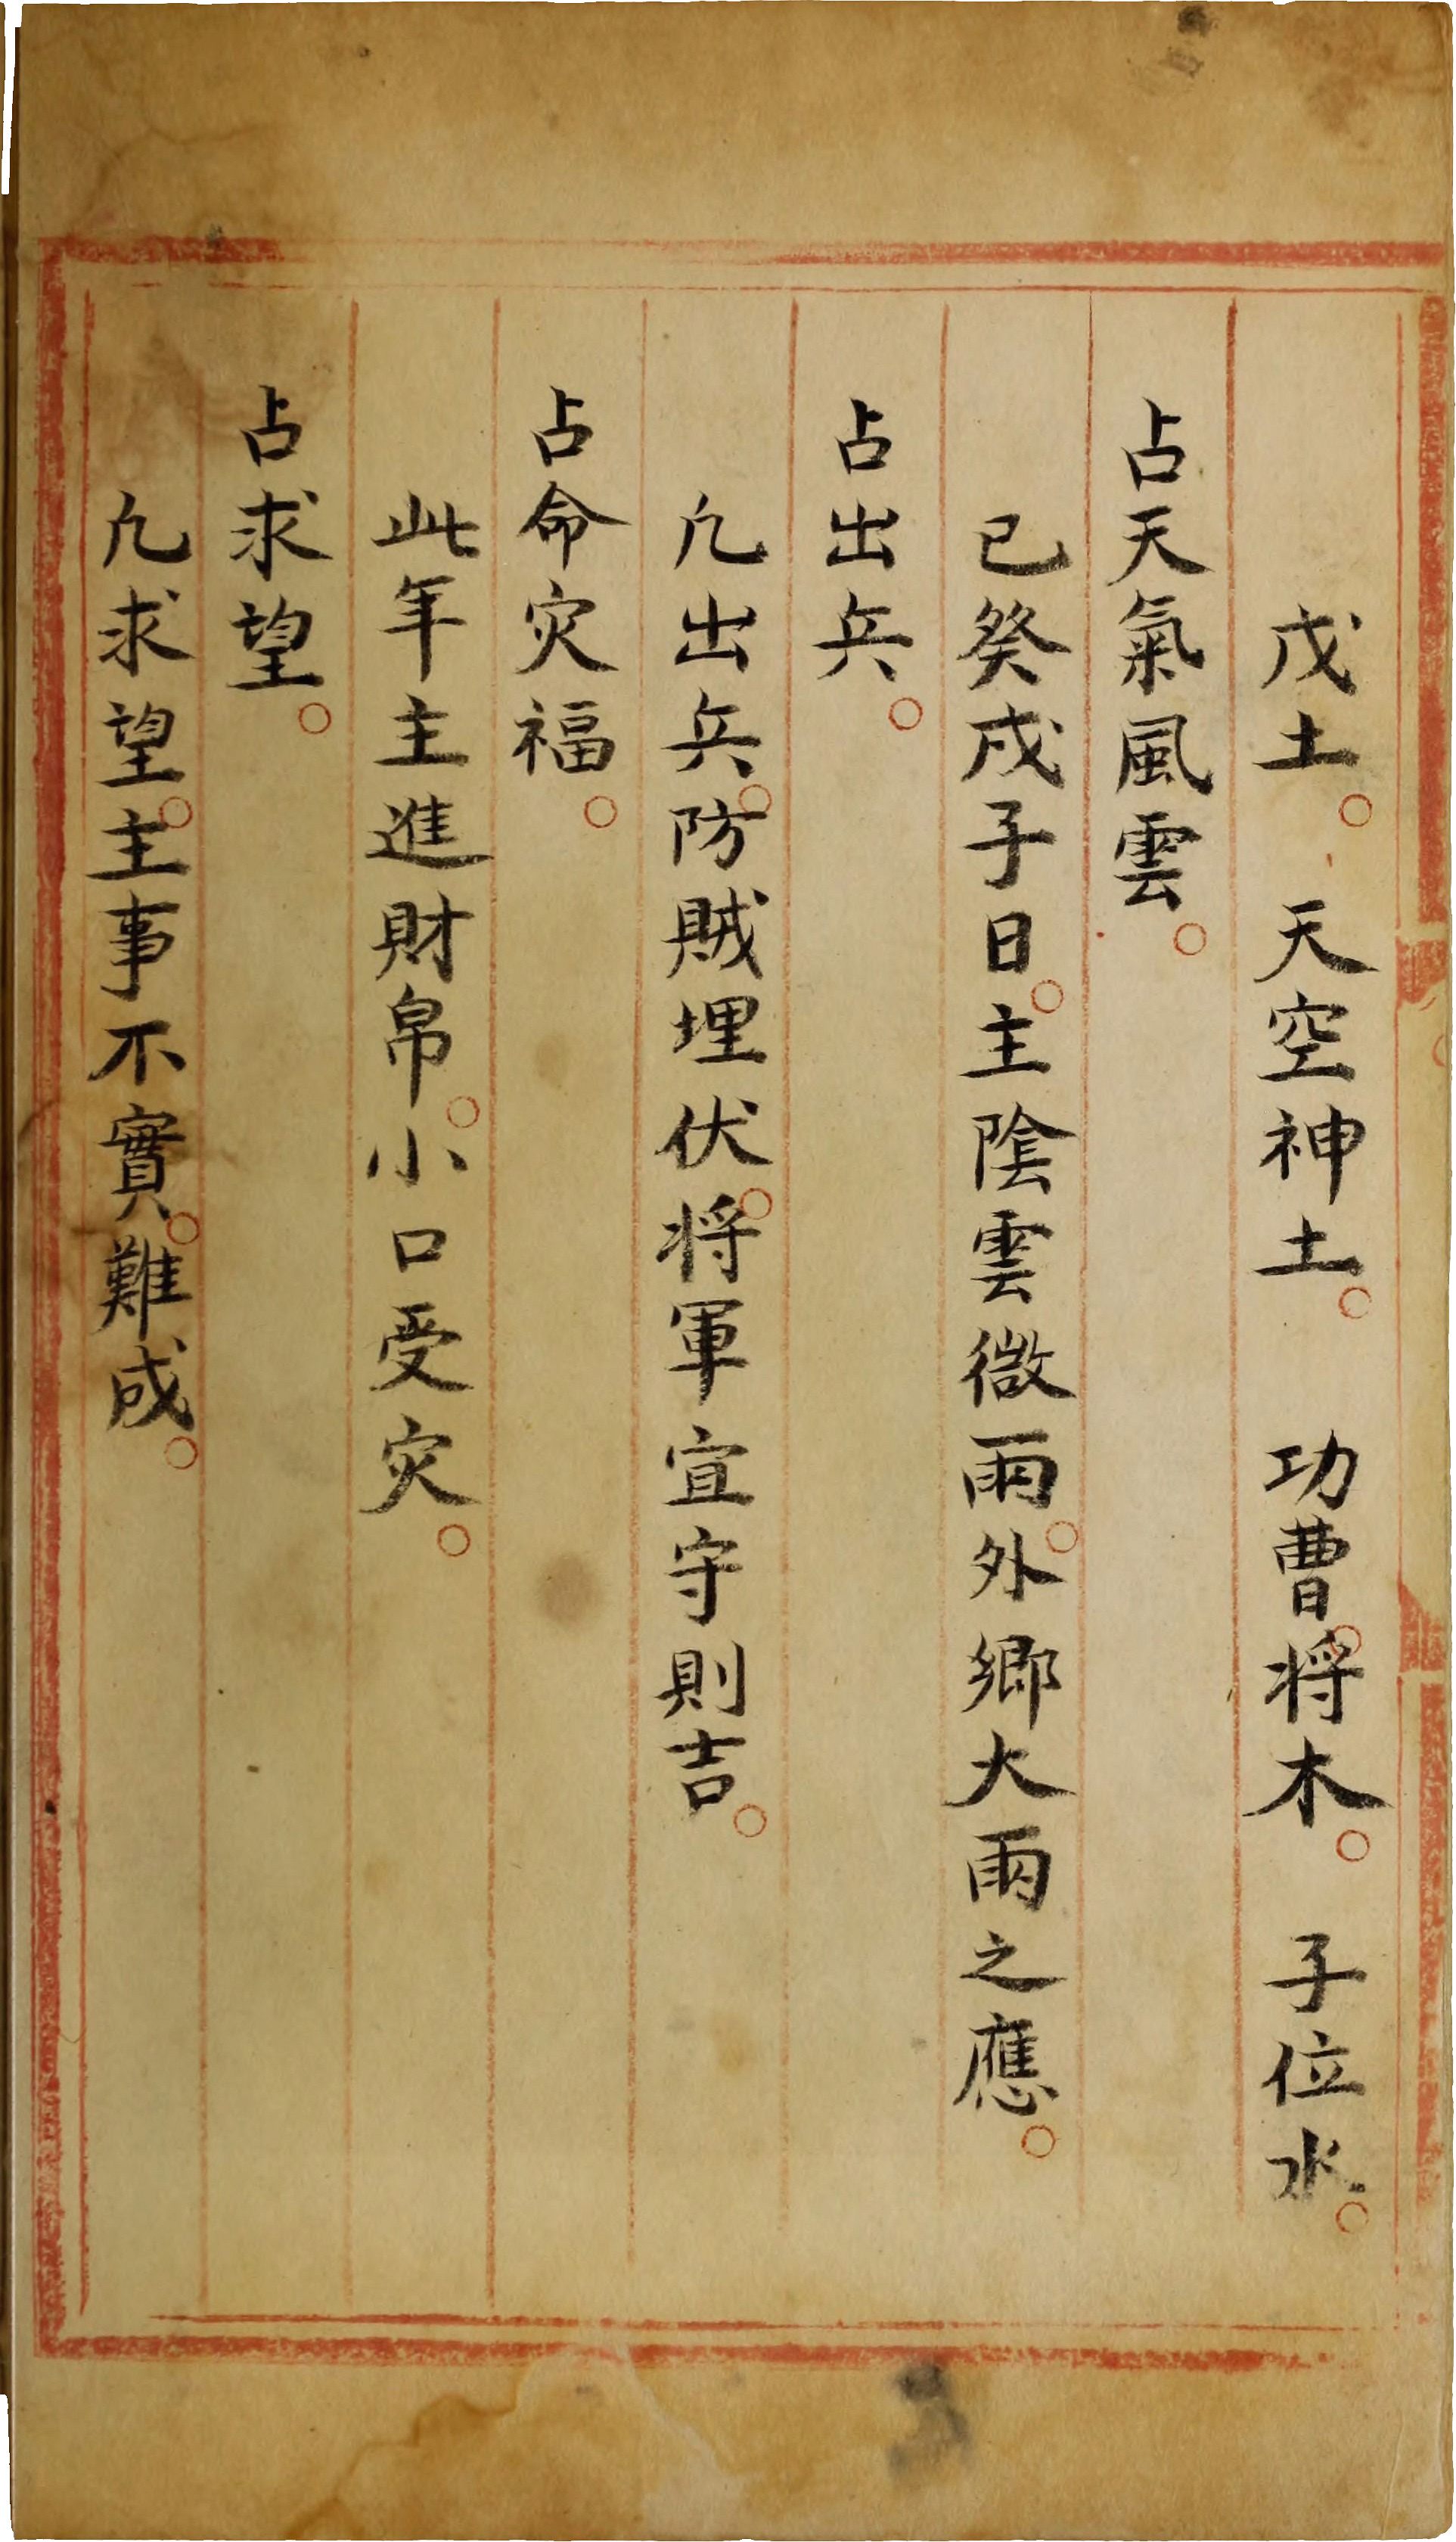 戊土。天空神土。功曹。将木。子位水。
占天氣風雲。
己癸戌子日。主陰雲微雨。外鄉大雨之應。
占出兵。
凢出兵。防賊埋伏。将軍宜守則吉。
占命灾福。
此年主進財帛。小口受灾。
占求望。
凢求望。主事不實。難成。